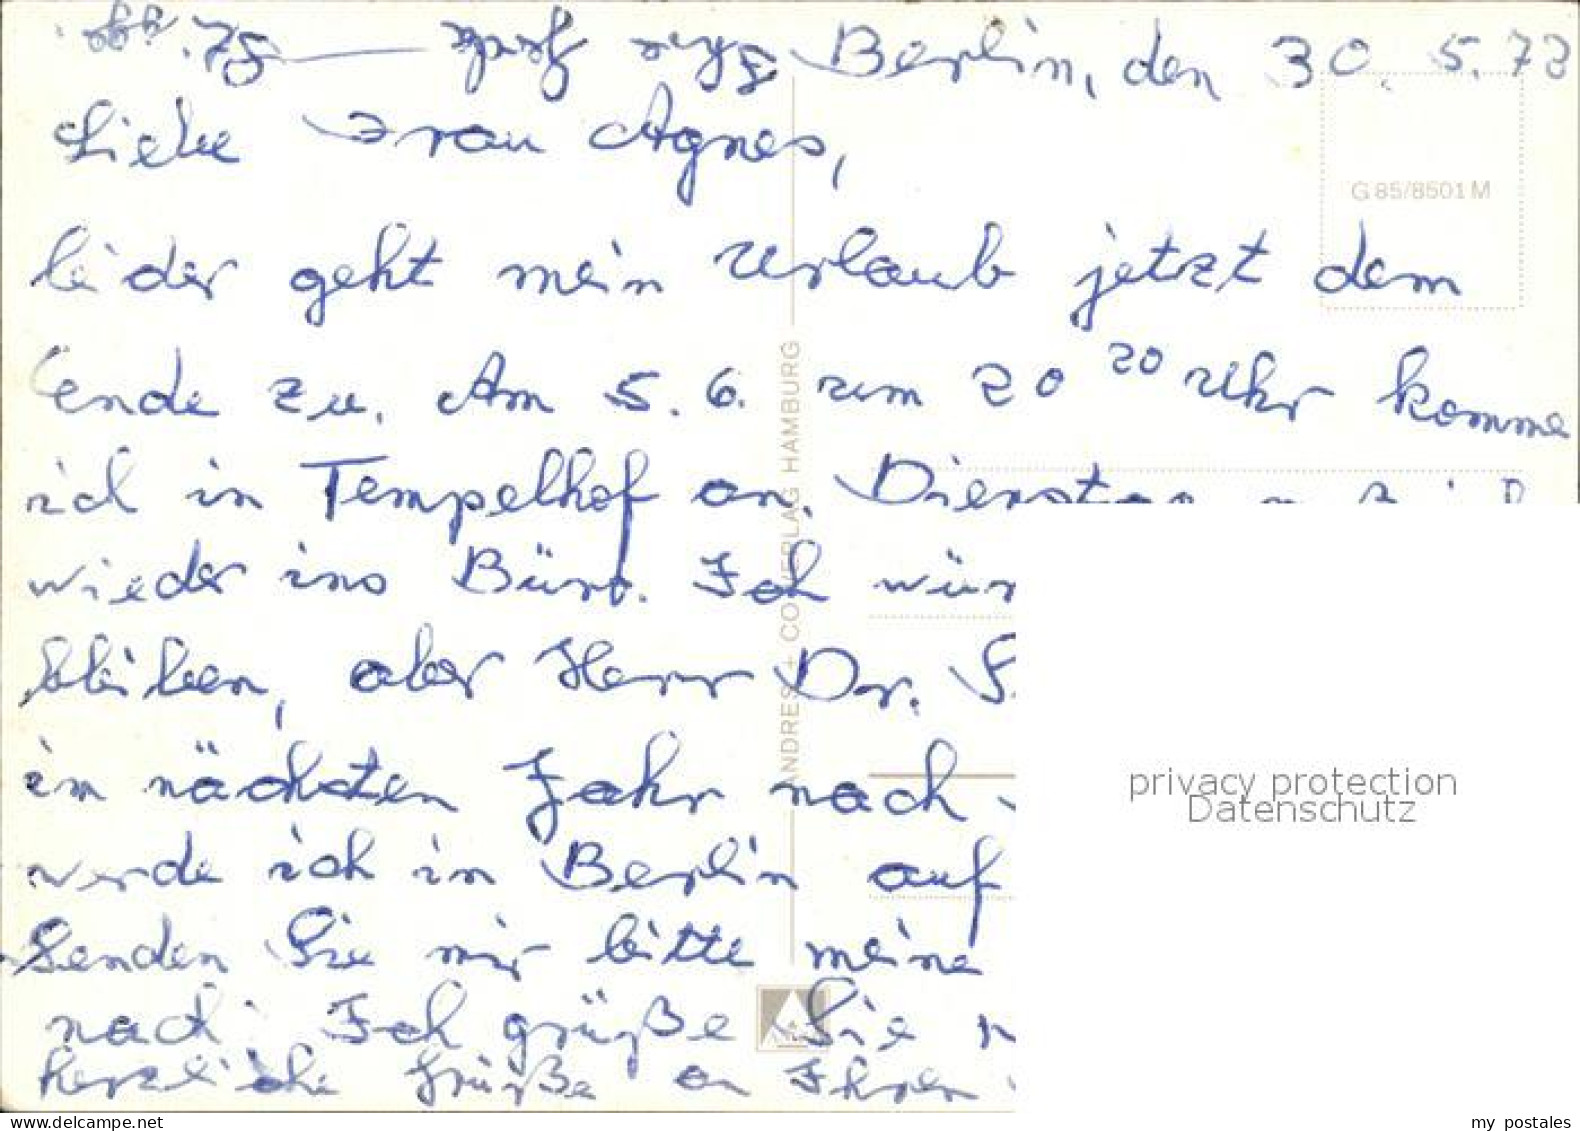 Berlin, den 30. 5. 78
Liebe Frau Agnes,
leider geht mein Urlaub jetzt dem
Ende zu. Am 5. 6. um 20 20 Uhr komme
ich in Tempelhof an. Dienstag
wieder ins Büro. Ich
bleiben, aber Herr Dr. S.
im nächsten Jahr noch
werde ich in Berlin auf
Senden Sie mir bitte meine
nach. Ich grüße Sie
herzliche Grüße an Ihren
G 85/8501 M
ANDRES + CO VERLAG HAMBURG
privacy protection
Datenschutz
www.delcampe.net
my_postales